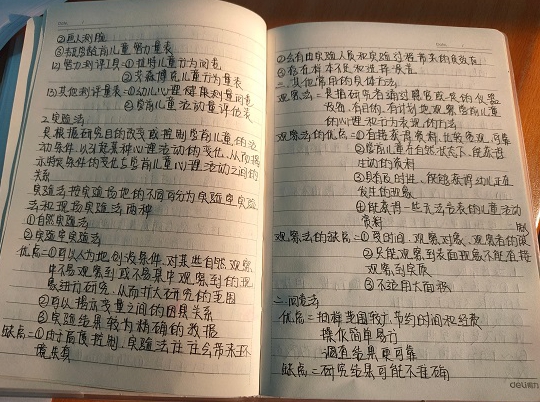 ②画人测验
③韦氏学龄前儿童智力量表
(2)努力测评工具=①拉特儿童行为问卷
②艾森博克儿童行为量表
(3)其他测评量表=①幼儿心理健康测量问卷
②学前儿童活动量评估表
2.实验法
是根据研究目的改变或控制学前儿童的活
动条件,以引起某种心理活动的变化,从而揭
示特定条件的变化与学前儿童心理活动之间的
关系
实验法按实验场地的不同百分为实验室实验
法和现场实验法两种
①自然实验法
②实验室实验法
优点=①可以人为地创设条件,对某些自然观察
中不易观察到或不易集中观察到的现
象进行研究,从而扩大研究的范围
②可以揭示变量之间的因果关系
③实验结果较为精确的数据
缺点=①由于高度控制,实验法往往会带来环
境失真
②会有由实验人员和实验过程带来的负效应
③存在样本误和选择误差
三.其他常用的具体方法
观察法=是指研究者通过感官或一定的仪器
设备,有目的、有计划地观察学前儿童
的心理和行为表现的方法
观察法的优点=①直接获得资料,比较客观、可靠
②学前儿童在自然状态下,能获得
生动的资料
③具有及时性,能够获得幼儿正在
发生的现象
④能获得一些无法言表的儿童活动
资料
观察法的缺点=①受时间、观察对象、观察者的限
②只能观察到表面现象不能直接
观察到实质
③不适用大面积
二.问卷法
优点=抽样范围较大,节约时间和经费
操作简单易行
调查结果更可靠
缺点=研究结果可能不准确
deli